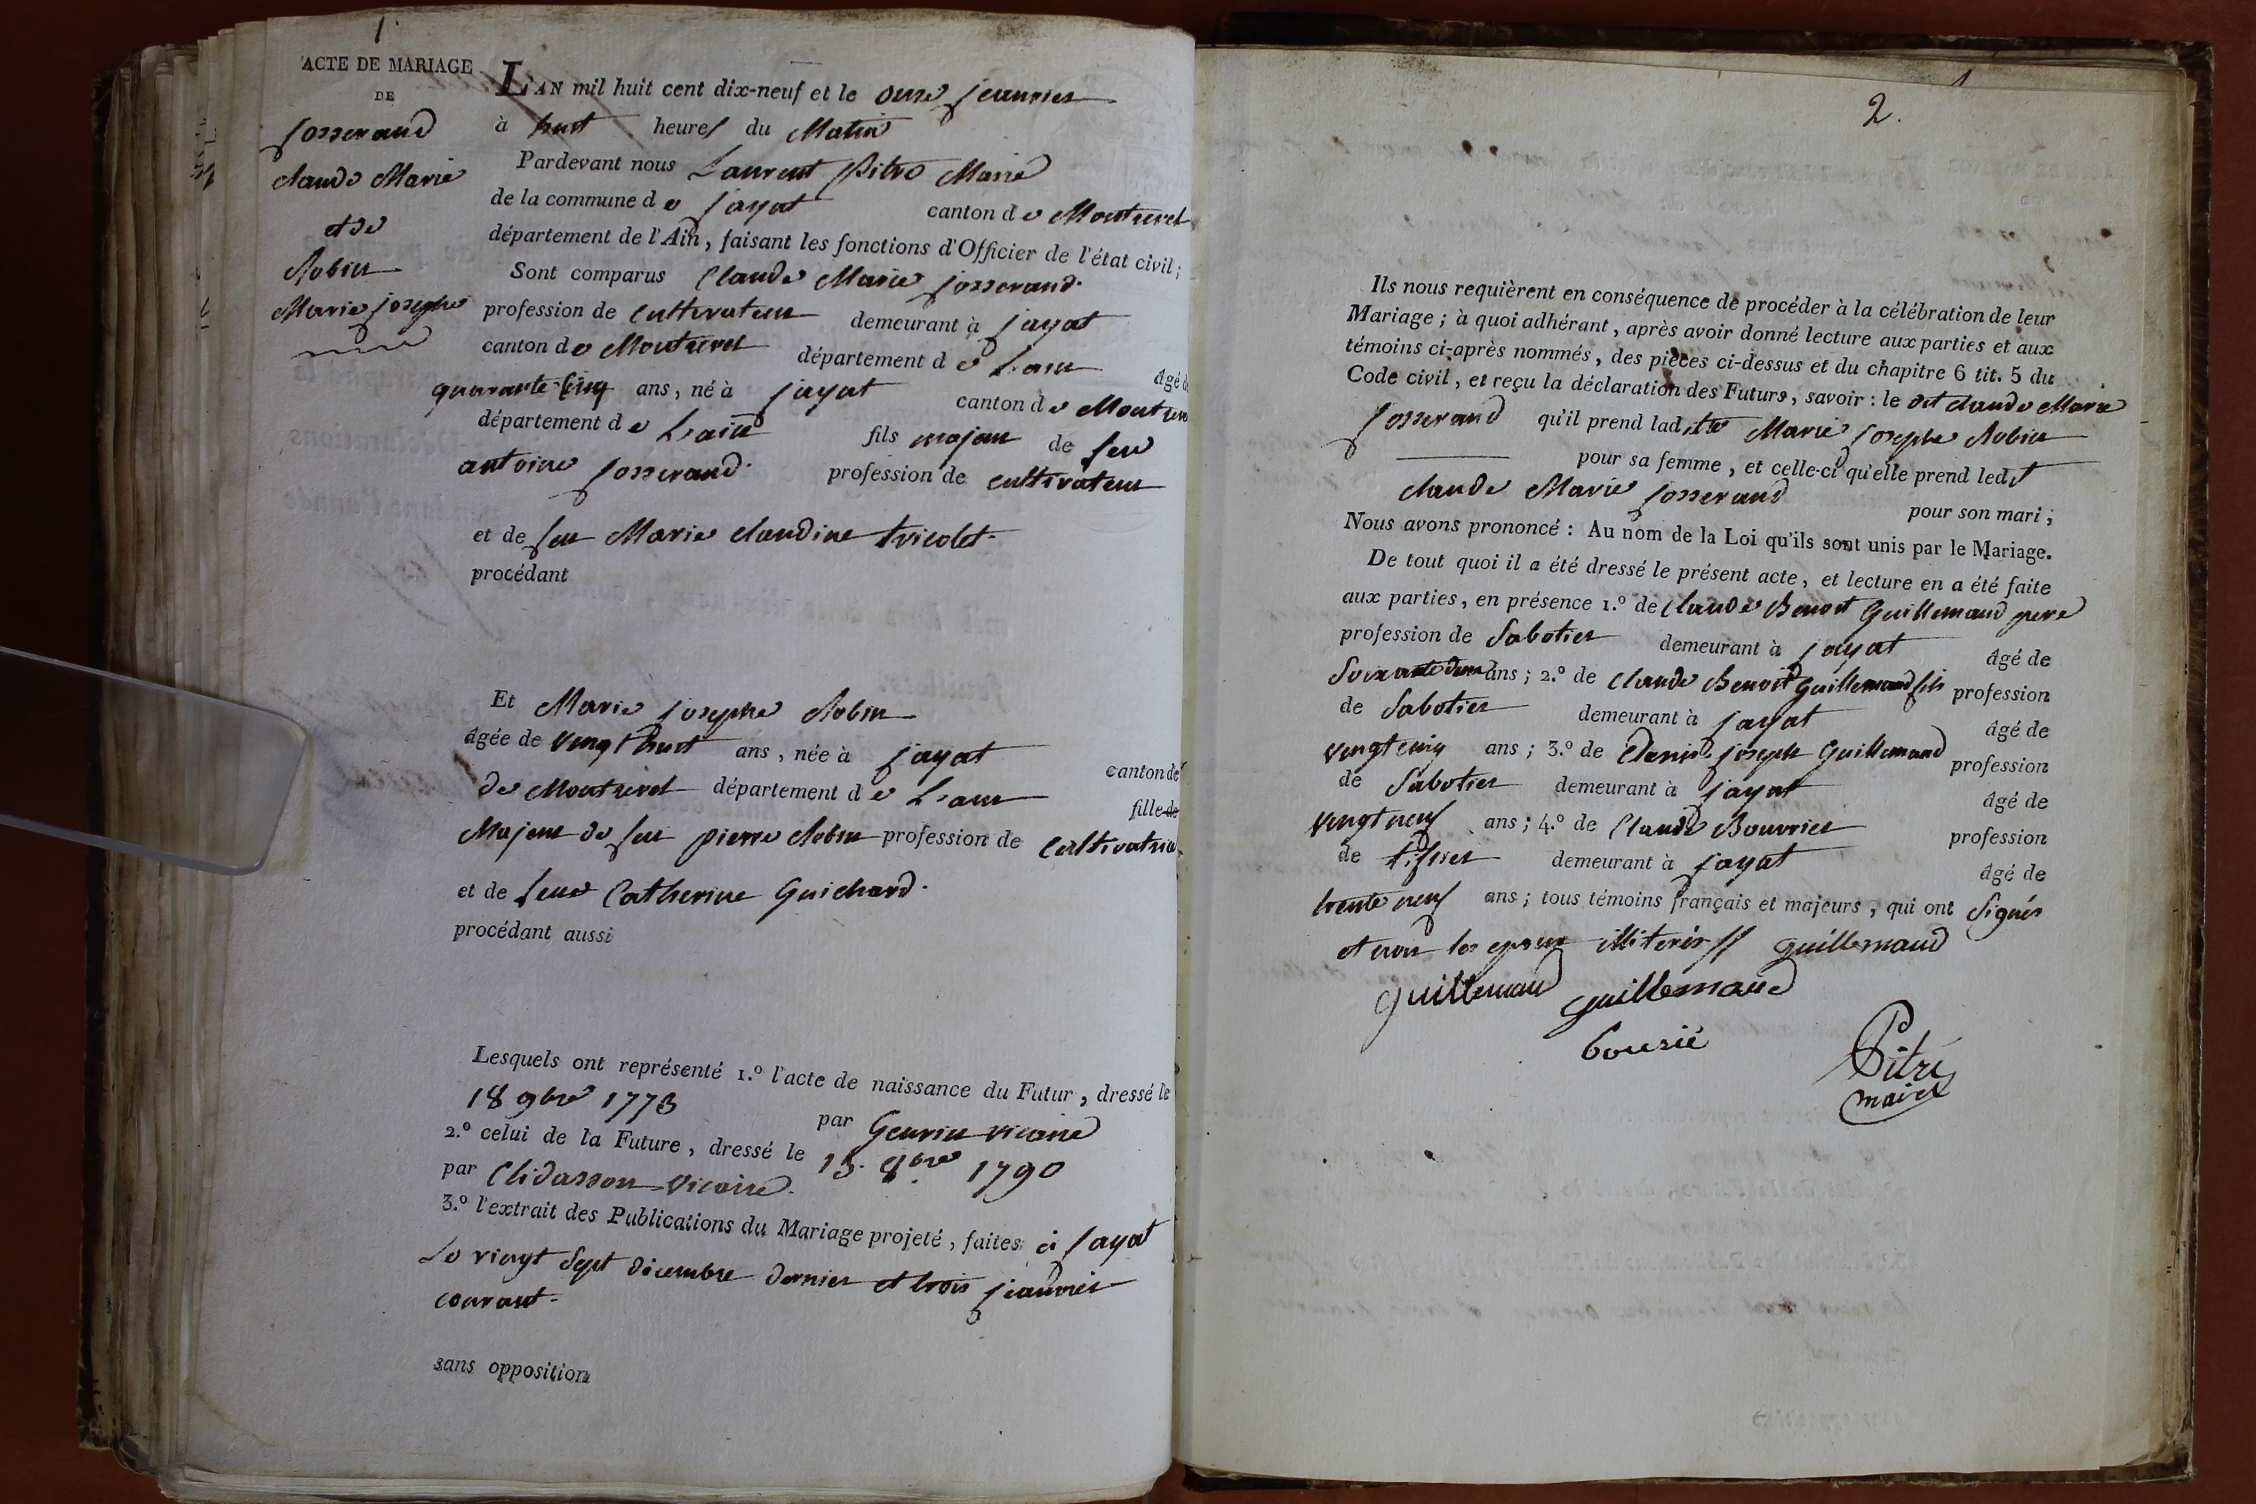 1.
ACTE DE MARIAGE
DE
Josserand
claude Marie
et de
Robin
Marie josephe
L'AN mil huit cent dix-neuf et le onze jeanvier
à huit heures du Matin
Pardevant nous Laurent Pitre Maire
de la commune de jayat canton de Montrevel
département de l'Ain, faisant les fonctions d'Officier de l'état civil;
Sont comparus Claude Marie josserand.
profession de Cultivateur demeurant à jayat
canton de Montrevel département de L'ain âgé de
quarante-cinq ans, né à jayat canton de Montrevel
département de L'ain fils majeur de feu
antoine josserand. profession de cultivateur
et de feu Marie claudine tricolet.
procédant
Et Marie josephe Robin
âgée de vingt huit ans, née à jayat canton de
de Montrevel département de L'ain fille de
Majeur de feu pierre Robin profession de Cultivatrice
et de feue Catherine Guichard.
procédant aussi
Lesquels ont représenté 1.º l'acte de naissance du Futur, dressé le
18 9bre 1773 par Geurin vicaire
2.º celui de la Future, dressé le 13. 8bre 1790
par Clidasson vicaire.
3.º l'extrait des Publications du Mariage projeté, faites à jayat
Le vingt Sept décembre dernier et trois jeanvier
courant.
sans opposition
1
2.
Ils nous requièrent en conséquence de procéder à la célébration de leur
Mariage; à quoi adhérant, après avoir donné lecture aux parties et aux
témoins ci-après nommés, des pièces ci-dessus et du chapitre 6 tit. 5 du
Code civil, et reçu la déclaration des Futurs, savoir: le dit claude Marie
josserand qu'il prend ladite Marie josephe Robin
pour sa femme, et celle-ci qu'elle prend ledt
claude Marie josserand pour son mari;
Nous avons prononcé: Au nom de la Loi qu'ils sont unis par le Mariage.
De tout quoi il a été dressé le présent acte, et lecture en a été faite
aux parties, en présence 1.º de Claude Benoit Guillemaud pere
profession de Sabotier demeurant à jayat âgé de
Soixante deux ans; 2.º de Claude Benoit Guillemaud fils profession
de Sabotier demeurant à jayat âgé de
vingt cinq ans; 3.º de Denis joseph Guillemaud profession
de Sabotier demeurant à jayat âgé de
vingt neuf ans; 4.º de Claude Bouvrier profession
de tissier demeurant à jayat âgé de
trente neuf ans; tous témoins français et majeurs, qui ont Signés
et non les epoux illiterés // guillemaud
guillemaud guillemaud
bourié
Pitre
maire